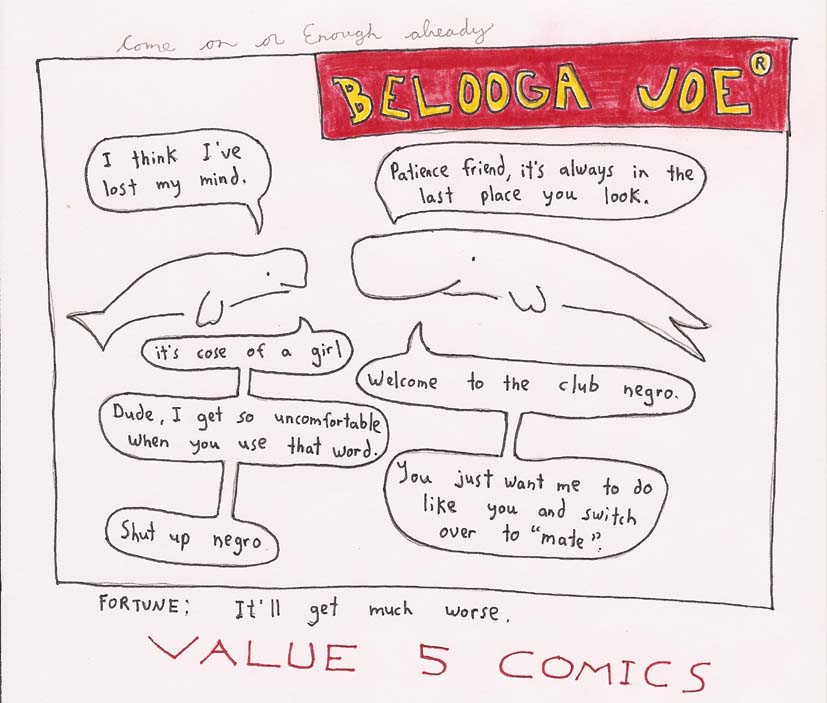 Come on or Enough already
BELOOGA JOE®
I think I've
lost my mind.
Patience friend, it's always in the
last place you look.
it's cose of a girl
Welcome to the club negro.
Dude, I get so uncomfortable
when you use that word.
You just want me to do
like you and switch
over to "mate".
Shut up negro
FORTUNE: It'll get much worse.
VALUE 5 COMICS